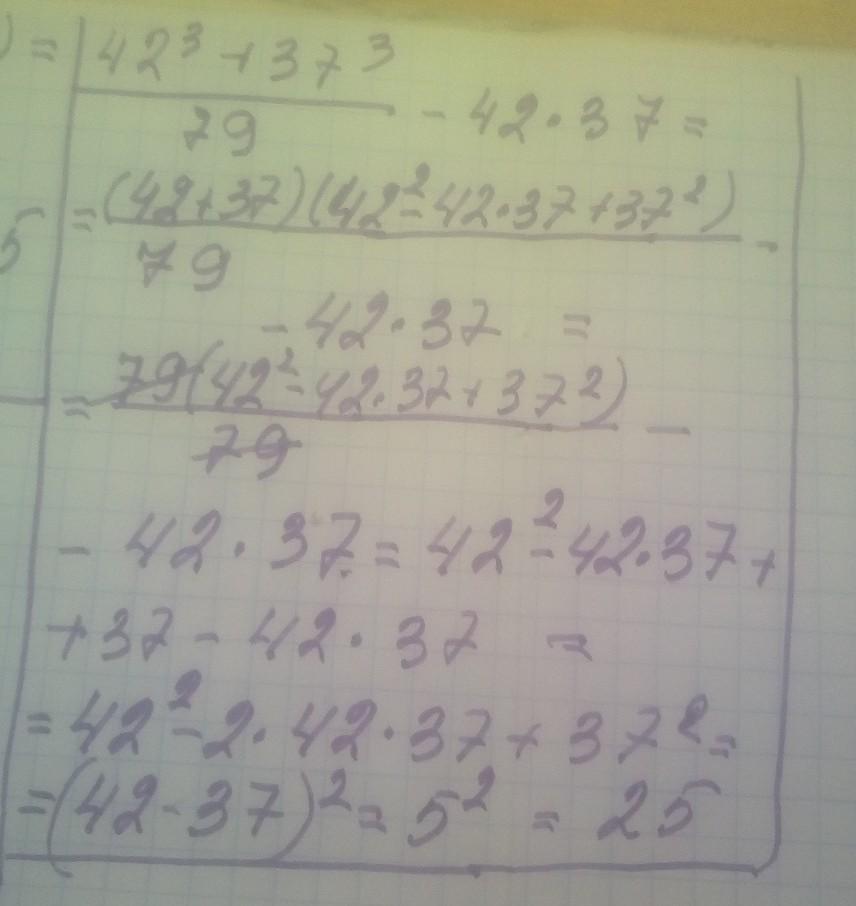 ) = 42³ + 37³
79 - 42·37 =
5 = (42+37)(42²-42·37+37²)
79 -
- 42·37 =
= 79(42²-42·37+37²)
79 -
- 42·37 = 42²-42·37+
+37 - 42·37 =
= 42²-2·42·37+37² =
= (42-37)² = 5² = 25